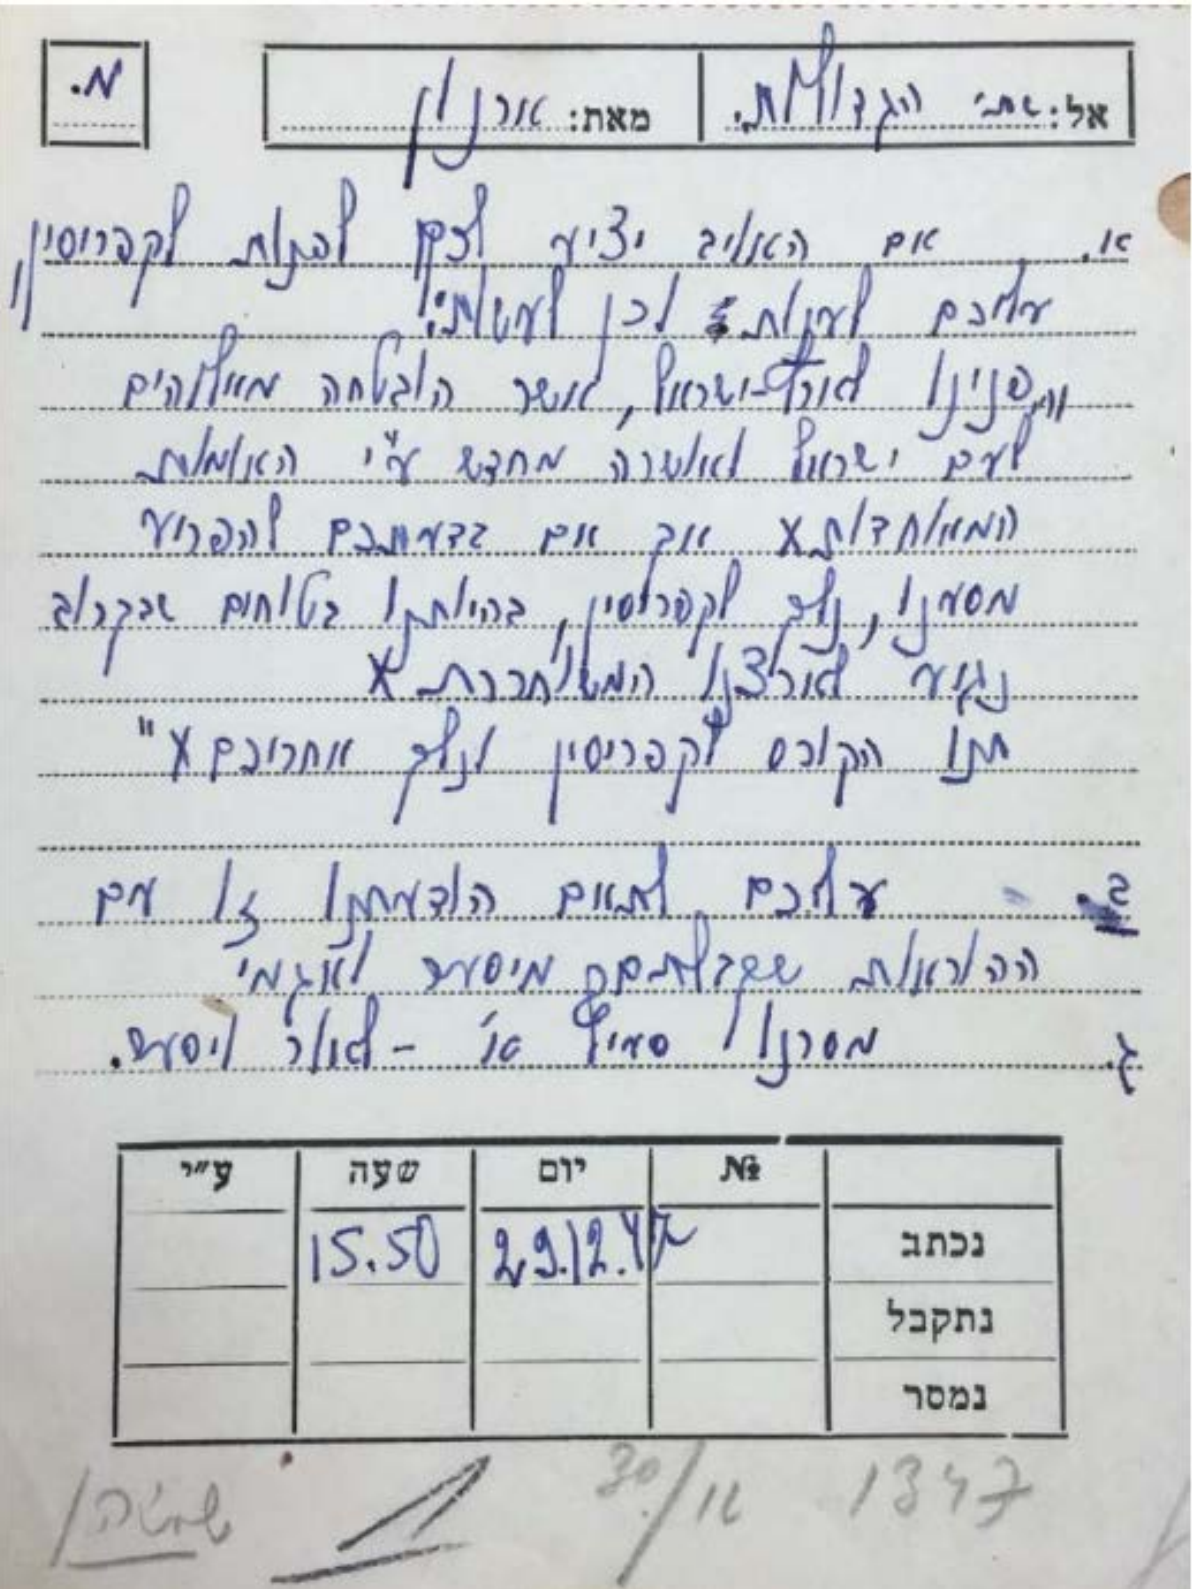 מ.
אל: שתי הגדולות. מאת: ארנון
א. אם האויב יציע לכם לפנות לקפריסין,
עליכם לענות לכן לעשות:
פנינו לארץ-ישראל, אשר הובטחה מאלוהים
לעם ישראל ואושרה מחדש ע"י האומות
המאוחדות x אך אם בדעתכם להפריע
מסענו, נלך לקפריסין, בהיותנו בטוחים שבקרוב
נגיע לארצנו המשוחררת x
תנו הקורס לקפריסין ונלך אחריכם x "
ב. עליכם לתאם הודעתנו זו עם
ההוראות שקבלתם מיסעור לאגמי
ג. מסרנו סעיף א' - לאור ויסעור.
№ יום שעה ע"י
נכתב 29.12.47 15.50
נתקבל
נמסר
1347 30/12